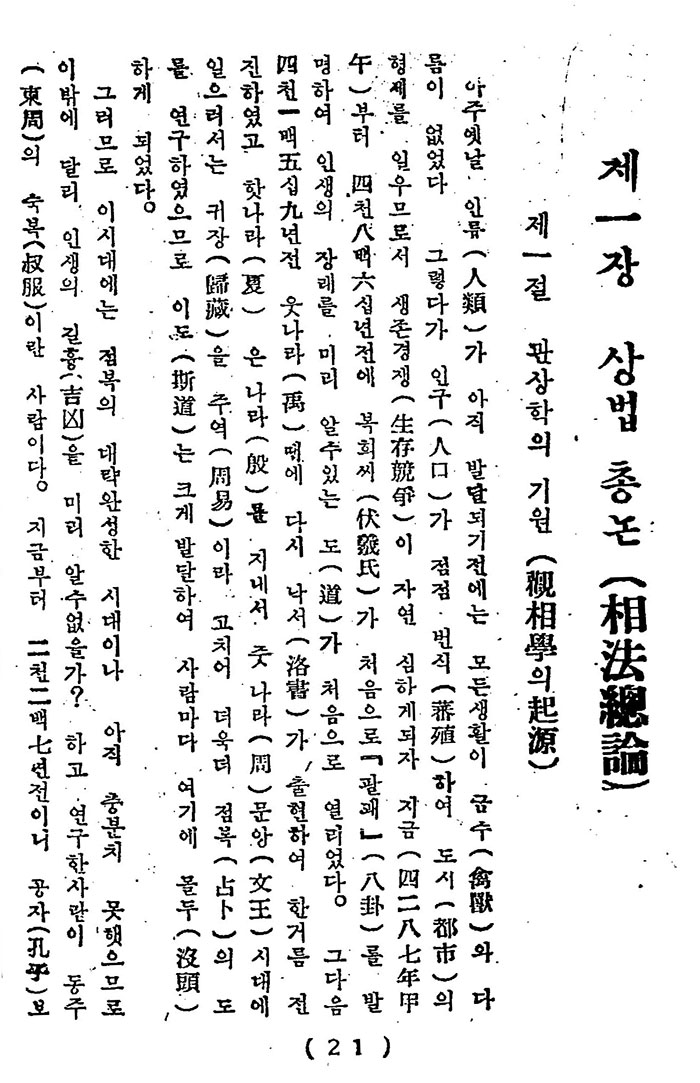 제一장 상법 총논 (相法總論)
제一절 관상학의 기원 (觀相學의起源)
아주옛날 인류(人類)가 아직 발달되기전에는 모든생활이 금수(禽獸)와 다
름이 없었다 그렇다가 인구(人口)가 점점 번식(蕃殖)하여 도시(都市)의
형세를 일우므로서 생존경쟁(生存競爭)이 자연 심하게되자 지금(四二八七年甲
午)부터 四천八백六십년전에 복희씨(伏羲氏)가 처음으로「팔괘」(八卦)를 발
명하여 인생의 장래를 미리 알수있는 도(道)가 처음으로 열리었다。 그다음
四천一백五십九년전 웃나라(禹)때에 다시 낙서(洛書)가 출현하여 한거름 전
진하였고 핫나라(夏) 은나라(殷)를 지내서 줏나라(周)문왕(文王)시대에
일으러서는 귀장(歸藏)을 주역(周易)이라 고치어 더욱더 점복(占卜)의 도
를 연구하였으므로 이도(斯道)는 크게발달하여 사람마다 여기에 몰두(沒頭)
하게 되었다。
그러므로 이시대에는 점복의 대략완성한 시대이나 아직 충분치 못했으므로
이밖에 달리 인생의 길흉(吉凶)을 미리 알수없을가? 하고 연구한사람이 동주
(東周)의 숙복(叔服)이란 사람이다。 지금부터 二천二백七년전이니 공자(孔子)보
(21)